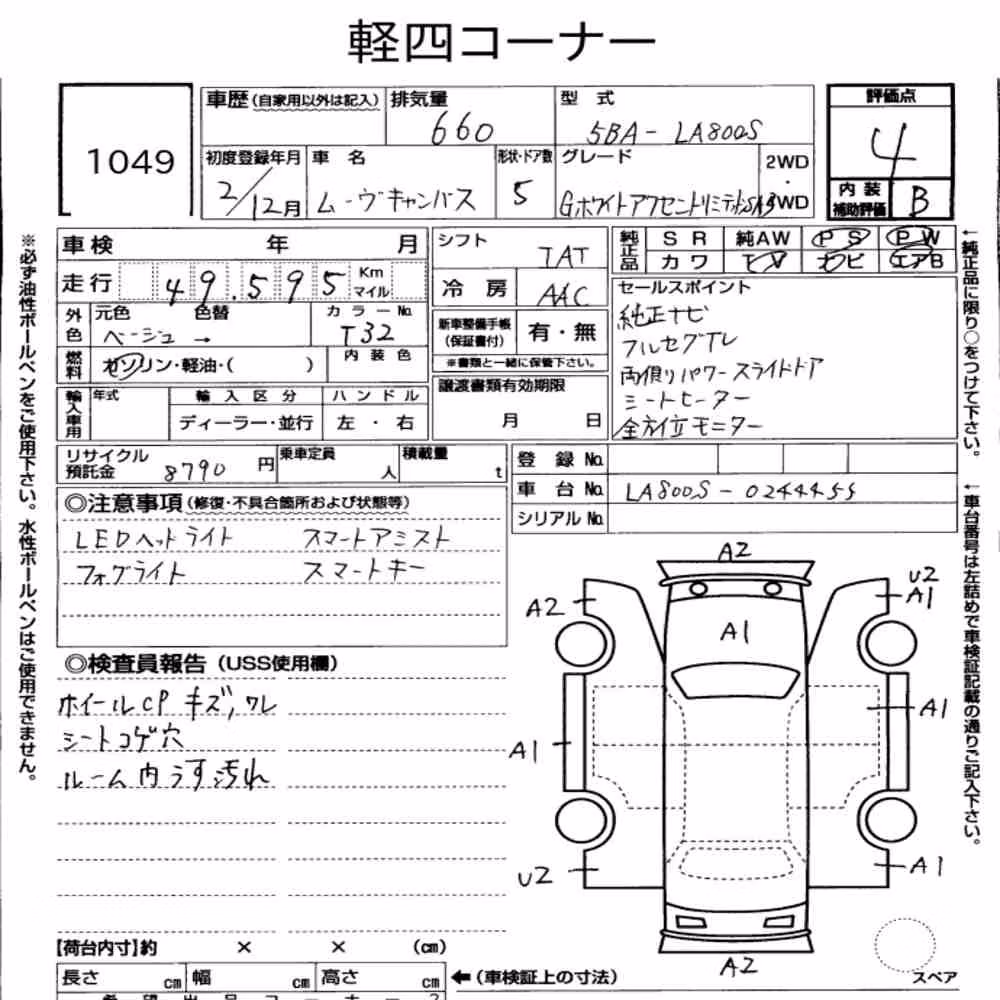 軽四コーナー
1049
車歴(自家用以外は記入)
排気量
660
型 式
5BA-LA800S
評価点
4
初度登録年月
2/12月
車 名
ムーヴキャンバス
形状・ドア数
5
グレード
GホワイトアクセントリミテッドSA3
2WD
・
4WD
内装
補助評価
B
車検 年 月
走行 49.595 Km
マイル
外色
元色 色替
ベージュ →
カラーNo.
T32
燃料
ガソリン・軽油・( )
内装色
輸入車用
年式
輸入区分
ディーラー・並行
ハンドル
左・右
シフト
IAT
冷房
AAC
新車整備手帳
(保証書付)
有・無
※書類と一緒に保管下さい。
譲渡書類有効期限
月 日
純正品
SR 純AW PS PW
カワ TV ナビ エアB
セールスポイント
純正ナビ
フルセグTV
両側リパワースライドドア
シートヒーター
全方位モニター
リサイクル
預託金
8790円
乗車定員
人
積載量
t
登録No.
車台No.
LA800S-0244455
シリアルNo.
◎注意事項(修復・不具合箇所および状態等)
LEDヘッドライト スマートアシスト
フォグライト スマートキー
◎検査員報告(USS使用欄)
ホイールCP キズ,ワレ
シートコゲ穴
ルーム内うす汚れ
A2
A2
U2
A1
A1
A1
A1
U2
A1
A2
スペア
【荷台内寸】約 × × (cm)
長さ cm 幅 cm 高さ cm
←(車検証上の寸法)
※必ず油性ボールペンをご使用下さい。水性ボールペンはご使用できません。
←純正品に限り○をつけて下さい。
←車台番号は左詰めで車検証記載の通りご記入下さい。